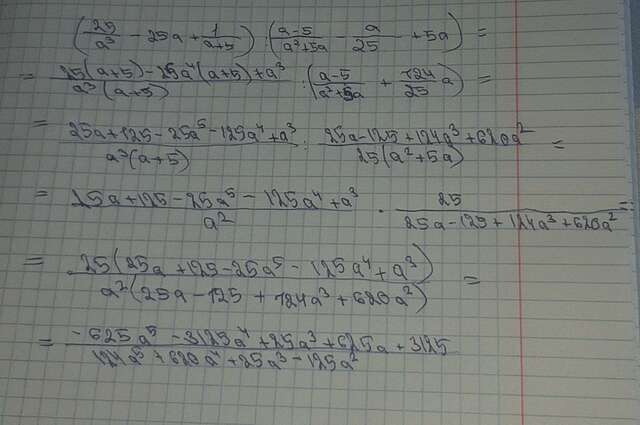 (25/a³ - 25a + 1/(a+5)) : ((a-5)/(a²+5a) - a/25 + 5a) =
= (25(a+5) - 25a⁴(a+5) + a³)/(a³(a+5)) : ((a-5)/(a²+5a) + 124/25 a) =
= (25a + 125 - 25a⁵ - 125a⁴ + a³)/(a³(a+5)) : (25a - 125 + 124a³ + 620a²)/(25(a²+5a)) =
= (25a + 125 - 25a⁵ - 125a⁴ + a³)/a² · 25/(25a - 125 + 124a³ + 620a²) =
= 25(25a + 125 - 25a⁵ - 125a⁴ + a³)/(a²(25a - 125 + 124a³ + 620a²)) =
= (-625a⁵ - 3125a⁴ + 25a³ + 625a + 3125)/(124a⁵ + 620a⁴ + 25a³ - 125a²)